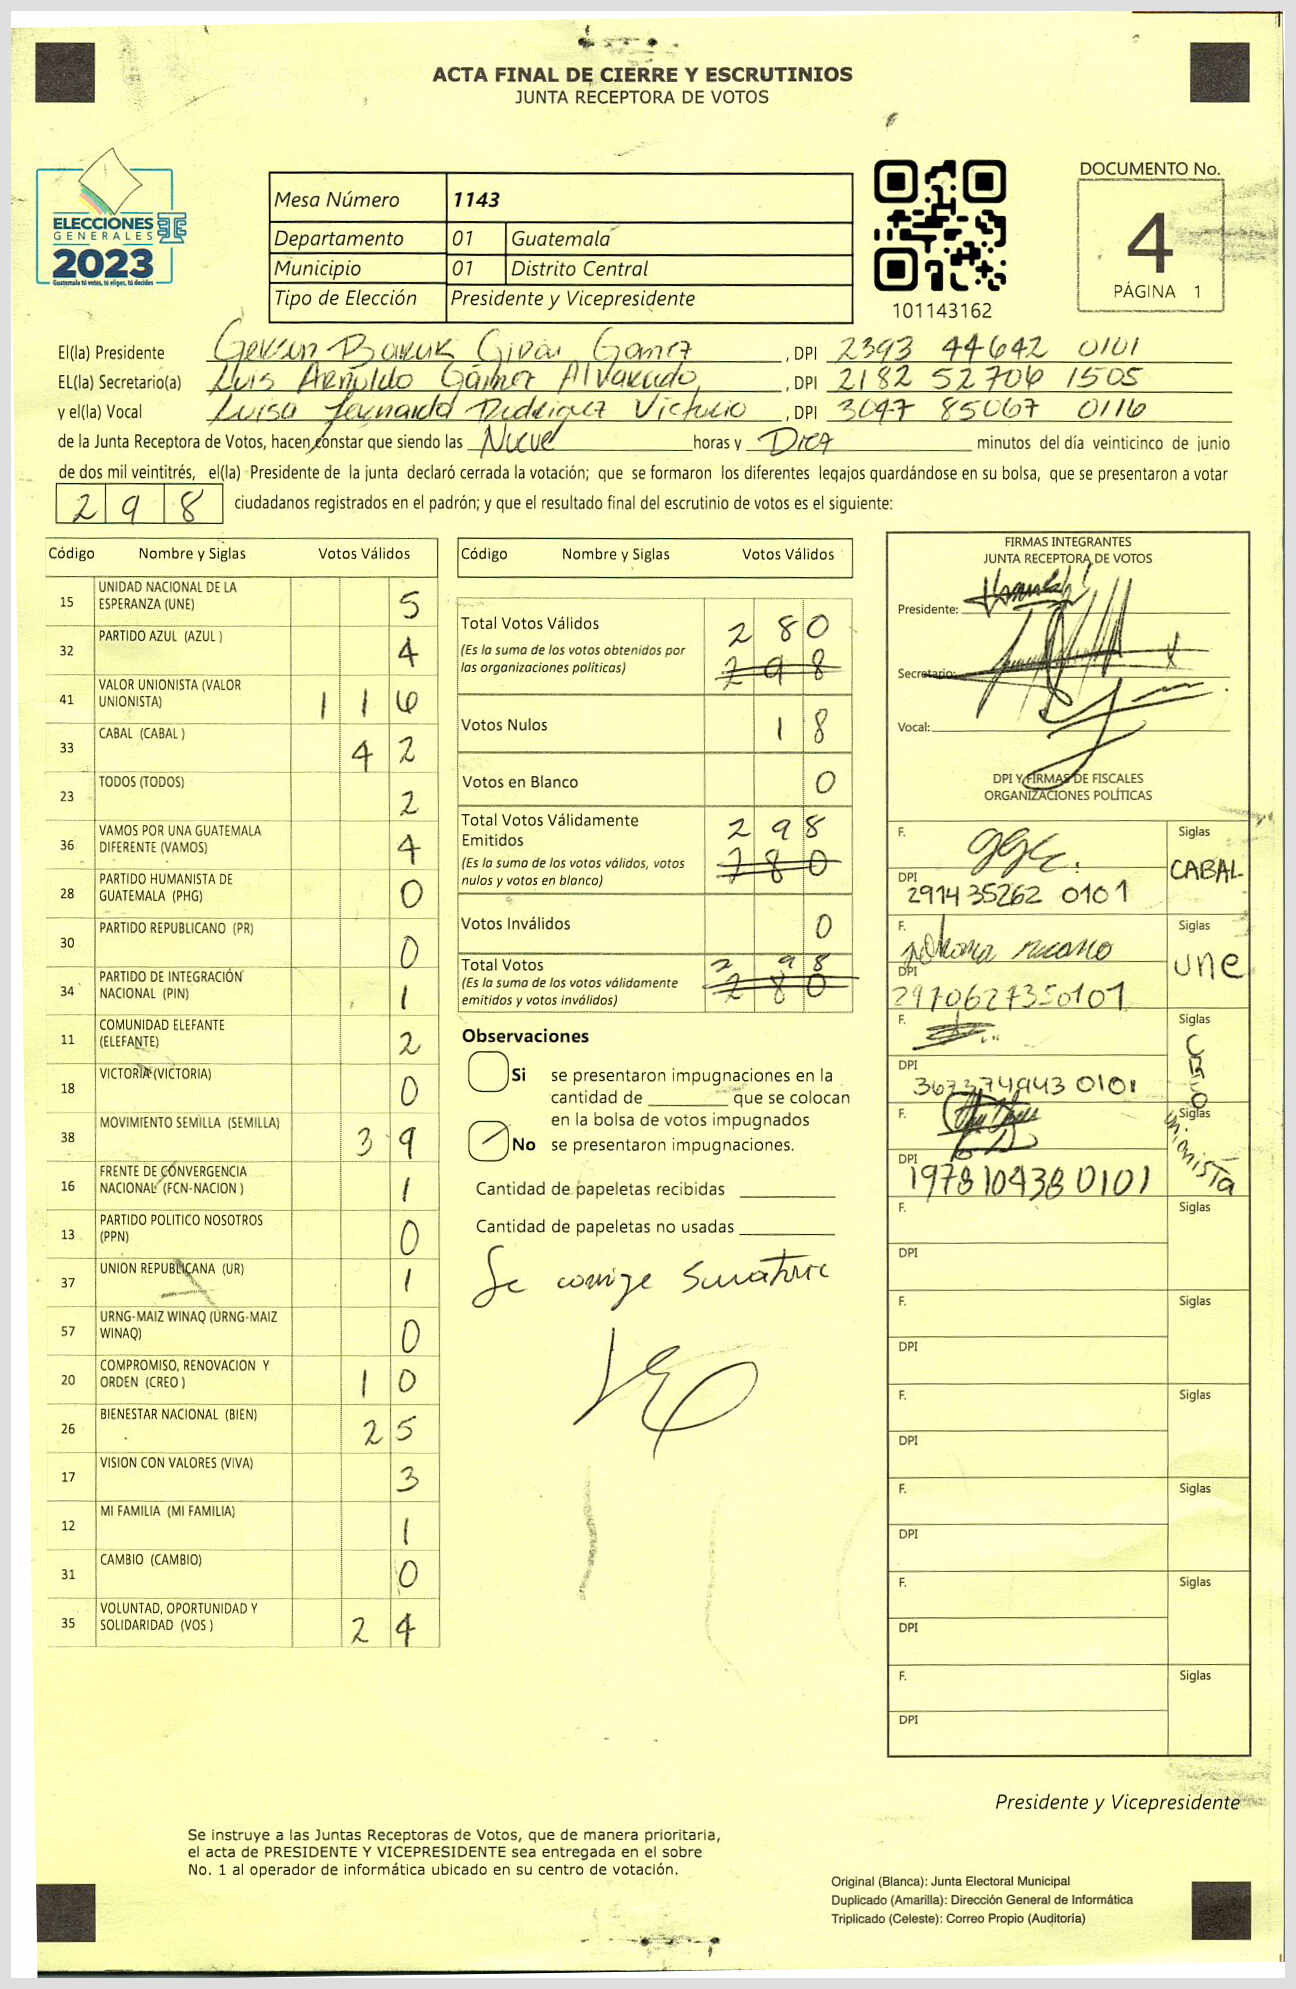 ACTA FINAL DE CIERRE Y ESCRUTINIOS
JUNTA RECEPTORA DE VOTOS
ELECCIONES
GENERALES
2023
Guatemala tú votas, tú eliges, tú decides
Mesa Número 1143
Departamento 01 Guatemala
Municipio 01 Distrito Central
Tipo de Elección Presidente y Vicepresidente
101143162
DOCUMENTO No.
4
PÁGINA 1
El(la) Presidente , DPI 2393 44642 0101
EL(la) Secretario(a) Luis Arnuldo Alvarado , DPI 2182 52706 1505
y el(la) Vocal Luisa Fernanda Rodriguez Victorio , DPI 3047 85067 0116
de la Junta Receptora de Votos, hacen constar que siendo las Nueve horas y Diez minutos del día veinticinco de junio
de dos mil veintitrés, el(la) Presidente de la junta declaró cerrada la votación; que se formaron los diferentes legajos quardándose en su bolsa, que se presentaron a votar
298 ciudadanos registrados en el padrón; y que el resultado final del escrutinio de votos es el siguiente:
Código Nombre y Siglas Votos Válidos
15 UNIDAD NACIONAL DE LA ESPERANZA (UNE) 5
32 PARTIDO AZUL (AZUL ) 4
41 VALOR UNIONISTA (VALOR UNIONISTA) 116
33 CABAL (CABAL ) 42
23 TODOS (TODOS) 2
36 VAMOS POR UNA GUATEMALA DIFERENTE (VAMOS) 4
28 PARTIDO HUMANISTA DE GUATEMALA (PHG) 0
30 PARTIDO REPUBLICANO (PR) 0
34 PARTIDO DE INTEGRACIÓN NACIONAL (PIN) 1
11 COMUNIDAD ELEFANTE (ELEFANTE) 2
18 VICTORIA (VICTORIA) 0
38 MOVIMIENTO SEMILLA (SEMILLA) 39
16 FRENTE DE CONVERGENCIA NACIONAL (FCN-NACION ) 1
13 PARTIDO POLITICO NOSOTROS (PPN) 0
37 UNION REPUBLICANA (UR) 1
57 URNG-MAIZ WINAQ (URNG-MAIZ WINAQ) 0
20 COMPROMISO, RENOVACION Y ORDEN (CREO ) 10
26 BIENESTAR NACIONAL (BIEN) 25
17 VISION CON VALORES (VIVA) 3
12 MI FAMILIA (MI FAMILIA) 1
31 CAMBIO (CAMBIO) 0
35 VOLUNTAD, OPORTUNIDAD Y SOLIDARIDAD (VOS ) 24
Código Nombre y Siglas Votos Válidos
Total Votos Válidos 280
(Es la suma de los votos obtenidos por las organizaciones políticas) 298
Votos Nulos 18
Votos en Blanco 0
Total Votos Válidamente Emitidos 298
(Es la suma de los votos válidos, votos nulos y votos en blanco) 280
Votos Inválidos 0
Total Votos 298
(Es la suma de los votos válidamente emitidos y votos inválidos) 280
Observaciones
Si se presentaron impugnaciones en la
cantidad de ________ que se colocan
en la bolsa de votos impugnados
No se presentaron impugnaciones.
Cantidad de papeletas recibidas
Cantidad de papeletas no usadas
Se corrige
FIRMAS INTEGRANTES
JUNTA RECEPTORA DE VOTOS
Presidente:
Secretario:
Vocal:
DPI Y FIRMAS DE FISCALES
ORGANIZACIONES POLÍTICAS
F. Siglas CABAL
DPI 291435262 0101
F. Siglas une
DPI 2970627350101
F. Siglas
DPI 367374943 0101
F. Siglas unionista
DPI 197810438 0101
F. Siglas
DPI
F. Siglas
DPI
F. Siglas
DPI
F. Siglas
DPI
F. Siglas
DPI
F. Siglas
DPI
Presidente y Vicepresidente
Se instruye a las Juntas Receptoras de Votos, que de manera prioritaria,
el acta de PRESIDENTE Y VICEPRESIDENTE sea entregada en el sobre
No. 1 al operador de informática ubicado en su centro de votación.
Original (Blanca): Junta Electoral Municipal
Duplicado (Amarilla): Dirección General de Informática
Triplicado (Celeste): Correo Propio (Auditoría)